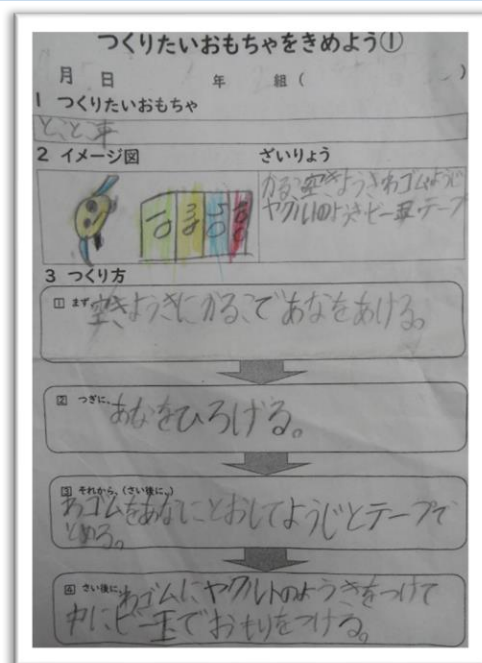 つくりたいおもちゃをきめよう①
月 日 年 組 ( )
1 つくりたいおもちゃ
とことこ車
2 イメージ図 ざいりょう
空きようきわゴムようじ
ヤクルトのようきビー玉・テープ
10 30 50 100
3 つくり方
① まず
空きようきに であなをあける。
② つぎに、
あなをひろげる。
③ それから、(さい後に、)
わゴムをあなにとおしてようじとテープで
とめる。
④ さい後に
わゴムにヤクルトのようきをつけて
中にビー玉でおもりをつける。